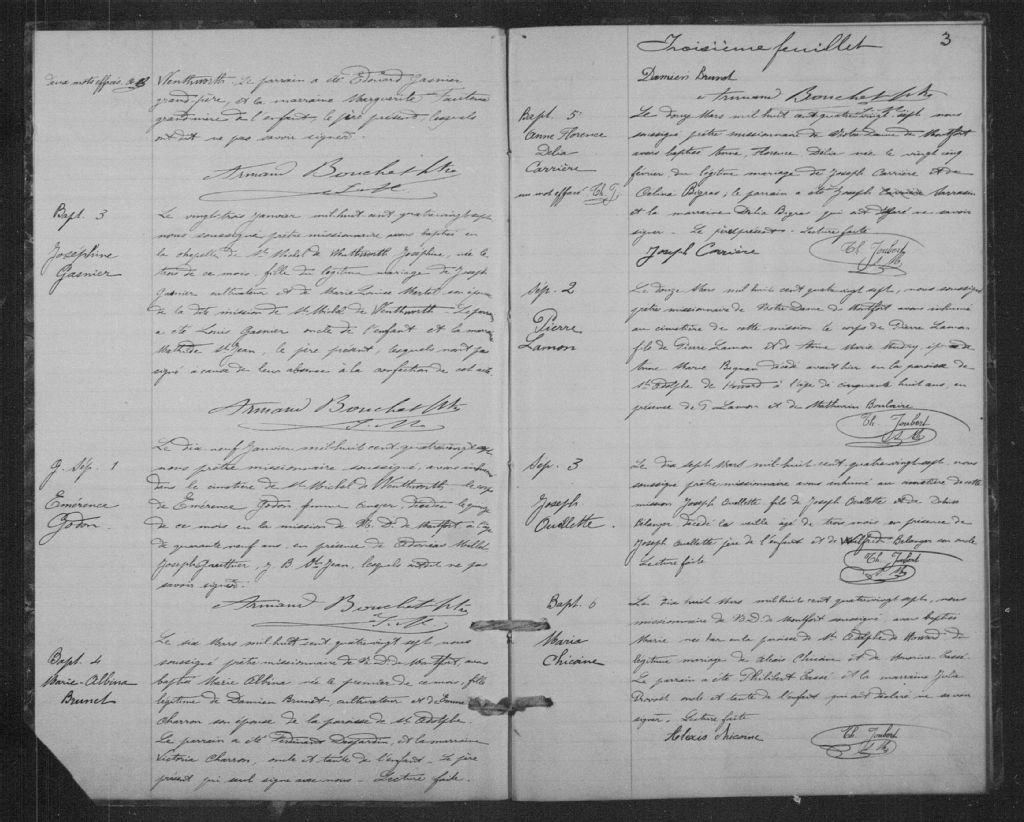 deux mots effacés
Wenthworth. Le parrain a été Edouard Gasnier
grand-père, et la marraine Marguerite
grand-mère de l'enfant, le père présent, lesquels
ont dit ne pas savoir signer.
Armand Bouchet Ptre
S. M.
Bapt. 3
Joséphine
Gasnier
Le vingt trois Janvier mil huit cent quatre vingt sept
nous soussigné prêtre missionnaire avons baptisé en
la chapelle de St Michel de Wenthworth Joséphine, née le
trois de ce mois, fille du légitime mariage de Joseph
Gasnier cultivateur et de Marie Louise Martel son épouse
de la dite mission de St Michel de Wenthworth. Le parrain
a été Louis Gasnier oncle de l'enfant et la marraine
Mathilde St Jean, le père présent, lesquels n'ont pas
signé à cause de leur absence à la confection de cet acte.
Armand Bouchet Ptre
S. M.
G. Sép. 1
Emérence
Godon.
Le dix neuf Janvier mil huit cent quatre vingt sept
nous prêtre missionnaire soussigné, avons inhumé
dans le cimetière de St Michel de Wenthworth le corps
de Emérence Godon femme décédée le
de ce mois en la mission de N. D. de Montfort, à l'âge
de quarante neuf ans, en présence de
Joseph Gauthier, J B St Jean, lesquels ont dit ne pas
savoir signer.
Armand Bouchet Ptre
S. M.
Bapt. 4
Marie-Albina
Brunet
Le six Mars mil huit cent quatre vingt sept nous
soussigné prêtre missionnaire de N. D. de Montfort, avons
baptisé Marie Albina née le premier de ce mois, fille
légitime de Damien Brunet, cultivateur et de
Charron son épouse de la paroisse de St Adolphe.
Le parrain a été Ferdinand Desjardin, et la marraine
Victoria Charron, oncle et tante de l'enfant. Le père
présent qui seul signe avec nous. Lecture faite.
3
Troisième feuillet
Damien Brunet
Armand Bouchet Ptre
Bapt. 5
Anne Florence
Délia
Carrière
un mot effacé Th. J.
Le douze Mars mil huit cent quatre vingt sept nous
soussigné prêtre missionnaire de Notre Dame de Montfort
avons baptisé Anne, Florence, Délia née le vingt cinq
février du légitime mariage de Joseph Carrière et de
Célina Bigras; le parrain a été Joseph Sarrasin
et la marraine Délia Bigras qui ont déclaré ne savoir
signer. Le père présent. Lecture faite.
Joseph Carrière
Th. Joubert
S. M.
Sep. 2
Pierre
Lamon
Le douze Mars mil huit cent quatre vingt sept, nous soussigné
prêtre missionnaire de Notre Dame de Montfort avons inhumé
au cimetière de cette mission le corps de Pierre Lamon
fils de Pierre Lamon et de Anne Marie
Anne Marie décédé avant hier en la paroisse de
St Adolphe de Howard à l'âge de cinquante huit ans, en
présence de G Lamon et de Mathurin Boulaire
Th. Joubert
S. M.
Sep. 3
Joseph
Ouellette.
Le dix sept Mars mil huit cent quatre vingt sept, nous
soussigné prêtre missionnaire avons inhumé au cimetière de cette
mission Joseph Ouellette fils de Joseph Ouellette et de
Belanger décédé la veille âgé de trois mois, en présence de
Joseph Ouellette père de l'enfant et de Wilfrid Belanger son oncle.
Lecture faite
Th. Joubert
S. M.
Bapt. 6
Maria
Chicoine
Le dix huit Mars mil huit cent quatre vingt sept, nous
missionnaire de N. D. de Montfort soussigné, avons baptisé
Marie née hier en la paroisse de St Adolphe de Howard du
légitime mariage de Alexis Chicoine et de
Le parrain a été Philibert et la marraine Julie
Provost oncle et tante de l'enfant qui ont déclaré ne savoir
signer. Lecture faite
Alexis Chicoine
Th. Joubert
S. M.